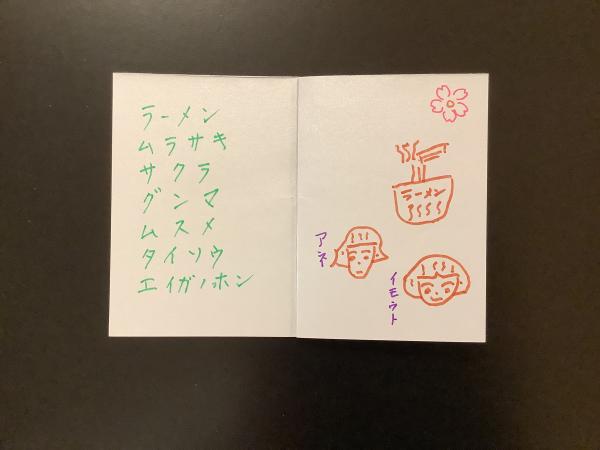 ラーメン
ムラサキ
サクラ
グンマ
ムスメ
タイソウ
エイガノホン
ラーメン
アネ
イモウト